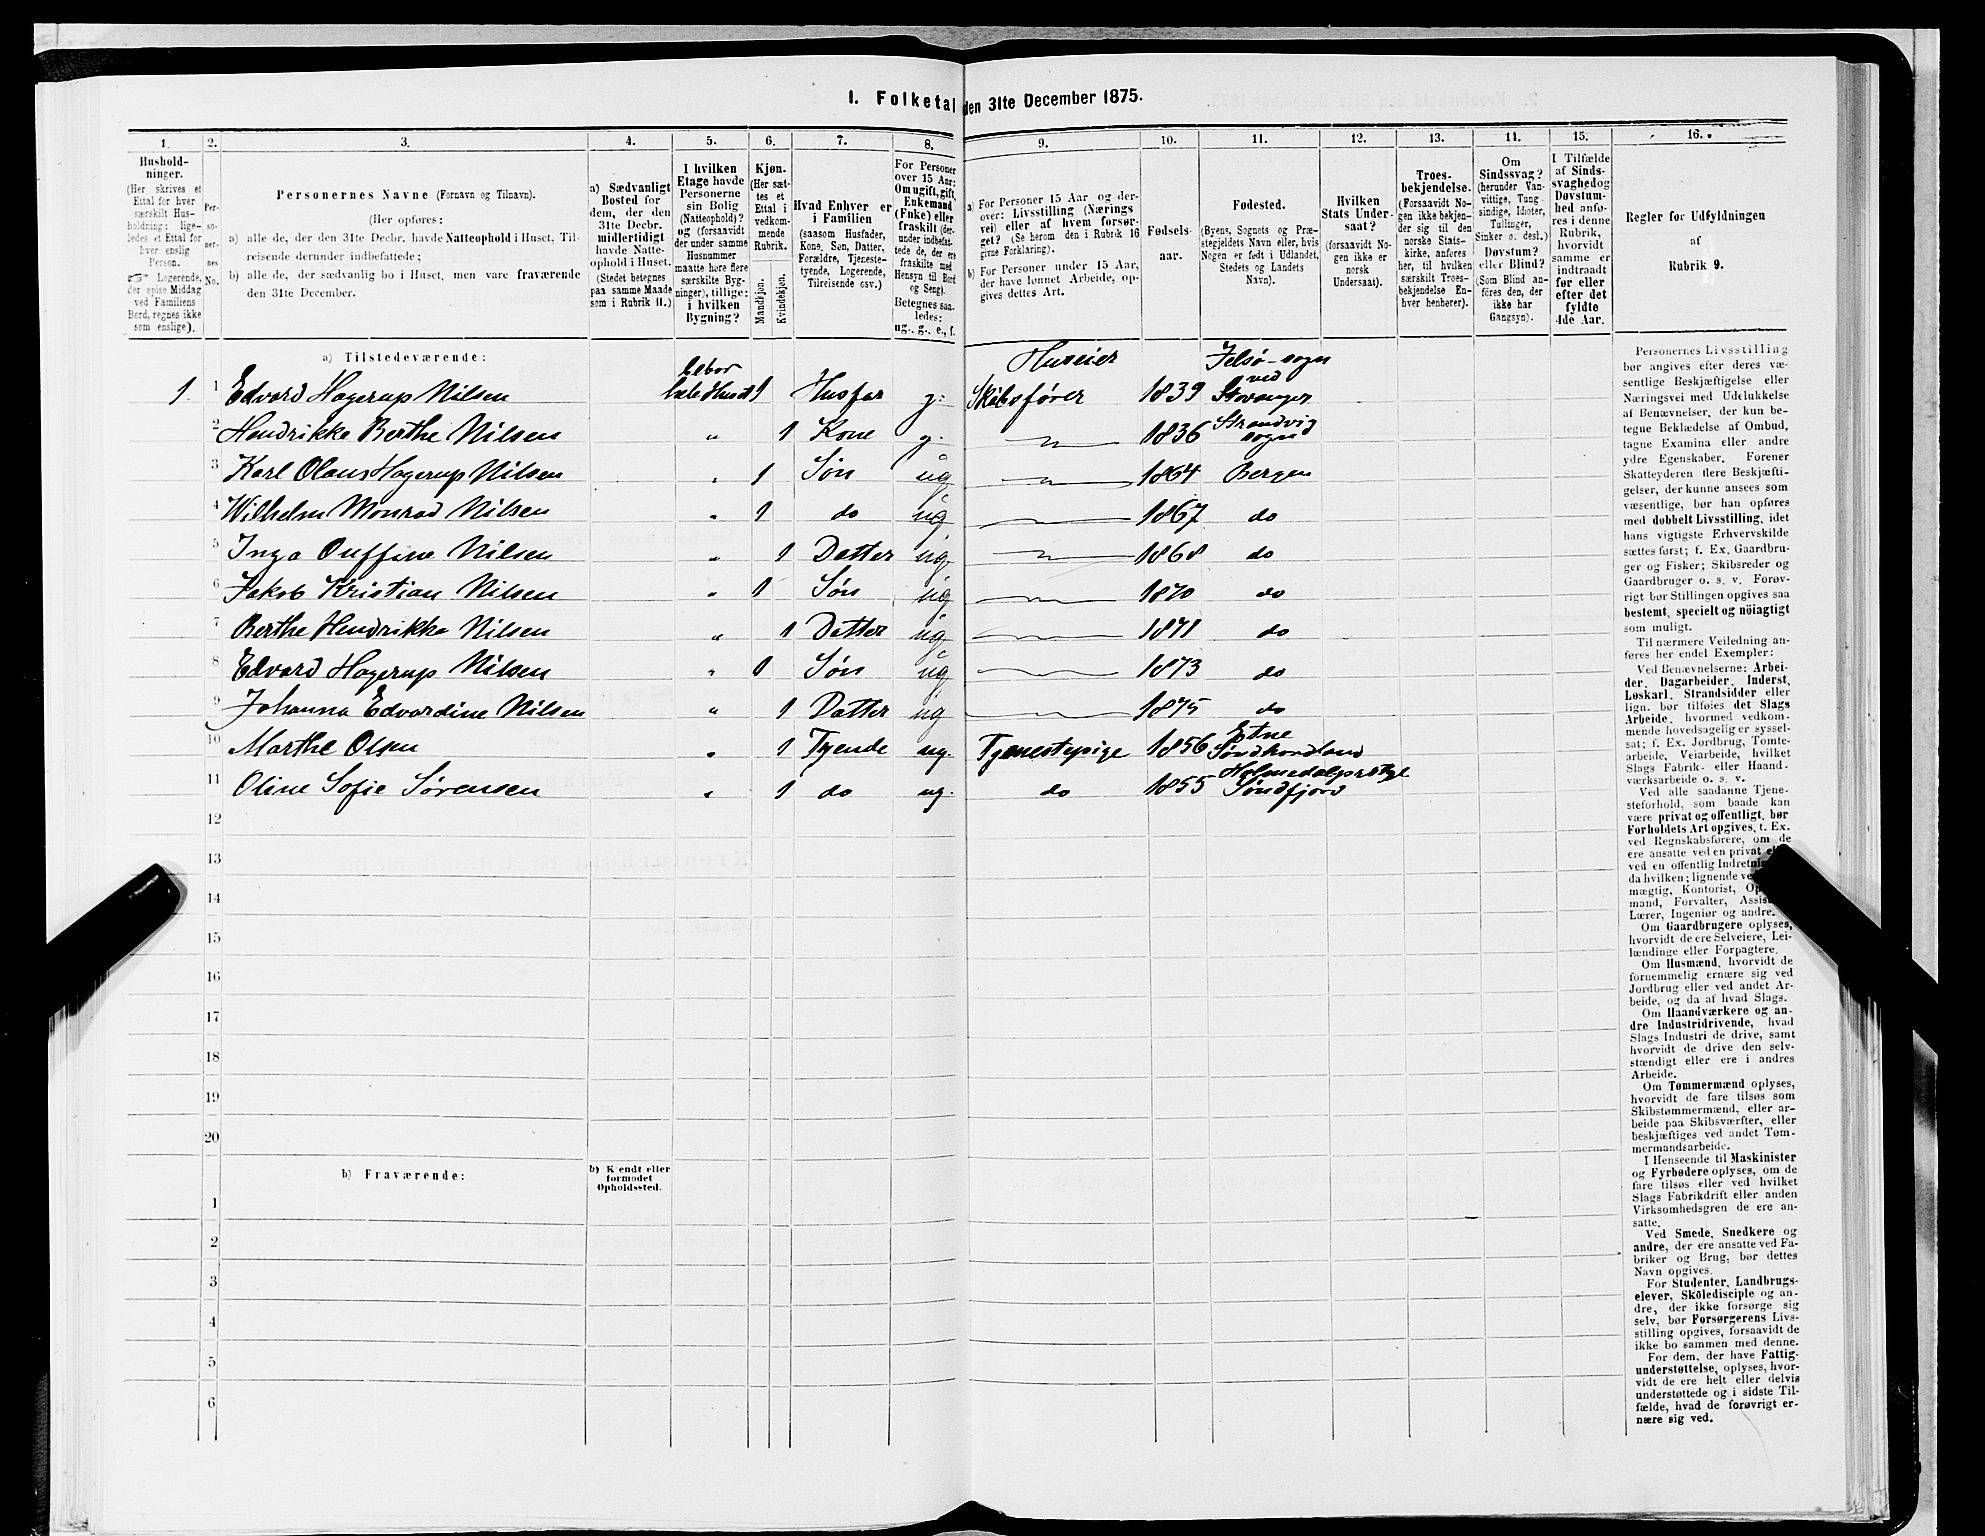 1. Folketal den 31te December 1875.
1. 2. 3. 4. 5. 6. 7. 8. 9. 10. 11. 12. 13. 14. 15. 16.
Hushold-
ninger.
(Her skrives et
Ettal for hver
særskilt Hus-
holdning: lige-
ledes et Ettal for
hver enslig
Person.
☞ Logerende,
der spise Middag
ved Familiens
Bord, regnes ikke
som enslige).
Per-
so-
ner-
nes
No.
Personernes Navne (Fornavn og Tilnavn).
(Her opføres:
a) alle de, der den 31te Decbr. havde Natteophold i Huset, Til-
reisende derunder indbefattede;
b) alle de, der sædvanlig bo i Huset, men vare fraværende
den 31te December.
a) Sædvanligt
Bosted for
dem, der den
31te Decbr.
midlertidigt
havde Natte-
ophold i Huset.
(Stedet betegnes
paa samme Maade
som i Rubrik 11.)
I hvilken
Etage havde
Personerne
sin Bolig
(Natteophold)?
og (forsaavidt
der under samme
Husnummer
maatte høre flere
særskilte Byg-
ninger), tillige:
i hvilken
Bygning?
Kjøn.
(Her sæt-
tes et
Ettal i
vedkom-
mende
Rubrik.
Mandkjøn.
Kvindekjøn.
Hvad Enhver er
i Familien
(saasom Husfader,
Kone, Søn, Datter,
Forældre, Tjeneste-
tyende, Logerende,
Tilreisende osv.)
For Personer
over 15 Aar:
Om ugift, gift,
Enkemand
(Enke) eller
fraskilt (der-
under indbefat-
tede de, der ere
fraskilte med
Hensyn til Bord
og Seng).
Betegnes saa-
ledes:
ug., g., e., f.
a) For Personer 15 Aar og der-
over: Livsstilling (Nærings
vei) eller af hvem forsør-
get? (Se herom den i Rubrik 16
givne Forklaring).
b) For Personer under 15 Aar,
der have lønnet Arbeide, op-
gives dettes Art.
Fødsels-
aar.
Fødested.
(Byens, Sognets og Præ-
stegjeldets Navn eller, hvis
Nogen er født i Udlandet,
Stedets og Landets
Navn).
Hvilken
Stats Under-
saat?
(forsaavidt No-
gen ikke er
norsk
Undersaat).
Troes-
bekjendelse.
(Forsaavidt No-
gen ikke bekjen-
der sig til den
norske Stats-
kirke, anføres
her, til hvilken
særskilt Troes-
bekjendelse En-
hver henhører).
Om
Sindssvag?
(herunder Van-
vittige, Tung
sindige, Idioter,
Tullinger,
Sinker o. desl.)
Døvstum?
eller Blind?
(Som Blind an-
føres den, der
ikke har
Gangsyn).
I Tilfælde
af Sinds-
svaghed og
Døvstum-
hed anfø-
res i denne
Rubrik,
hvorvidt
samme er
indtraadt
før eller
efter det
fyldte
4de Aar.
Regler for Udfyldningen
af
Rubrik 9.
a) Tilstedeværende:
bebor Huseier Jelsø-sogn
1. 1 Edvard Hagerup Nilsen hele Huset 1 Husfar g. Skibsfører 1839 ved Stavanger
2 Hendrikke Berthe Nilsen " 1 Kone g. 1836 Strandvig sogn
3 Karl Olaus Hagerup Nilsen " 1 Søn ug 1864 Bergen
4 Wilhelm Monrad Nilsen " 1 do ug 1867 do
5 Inga Nilsen " 1 Datter ug 1868 do
6 Jakob Kristian Nilsen " 1 Søn ug 1870 do
7 Berthe Hendrikke Nilsen " 1 Datter ug 1871 do
8 Edvard Hagerup Nilsen " 1 Søn ug 1873 do
9 Johanna Edvardine Nilsen " 1 Datter ug 1875 do
10 Marthe Olsen " 1 Tyende ug. Tjenestepige 1856 Etne Søndhordland
11 Oline Sofie Sørensen " 1 do ug. do 1855 Holmedalprstgj Søndfjord
12
13
14
15
16
17
18
19
20
b) Fraværende:
b) Kjendt eller
formodet
Opholdssted.
1
2
3
4
5
6
Personernes Livsstilling
bør angives efter deres væ-
sentlige Beskjæftigelse eller
Næringsvei med Udelukkelse
af Benævnelser, der kun be-
tegne Beklædelse af Ombud,
tagne Examina eller andre
ydre Egenskaber. Forener
Skatteyderen flere Beskjæfti-
gelser, der kunne ansees som
væsentlige, bør han opføres
med dobbelt Livsstilling, idet
hans vigtigste Erhvervskilde
sættes først; f. Ex. Gaardbru-
ger og Fisker; Skibsreder og
Gaardbruger o. s. v. Forøv-
rigt bør Stillingen opgives saa
bestemt, specielt og nöiagtigt
som muligt.
Til nærmere Veiledning an-
føres her endel Exempler:
Ved Benævnelserne: Arbei-
der, Dagarbeider, Inderst,
Løskarl, Strandsidder eller
lign. bør tilføies det Slags
Arbeide, hvormed vedkom-
mende hovedsagelig er syssel-
sat; f. Ex. Jordbrug, Tomte-
arbeide, Veiarbeide, hvilket
Slags Fabrik- eller Haand-
værksarbeide o. s. v.
Ved alle saadanne Tjene-
steforhold, som baade kan
være privat og offentligt, bør
Forholdets Art opgives, t. Ex.
ved Regnskabsførere, om de
ere ansatte ved en privat el
ved en offentlig Indretnin
da hvilken; lignende ve
mægtig, Kontorist, Op
mand, Forvalter, Assis
Lærer, Ingeniør og andre.
Om Gaardbrugere oplyses,
hvorvidt de ere Selveiere, Lei-
lændinge eller Forpagtere.
Om Husmænd, hvorvidt de
fornemmelig ernære sig ved
Jordbrug eller ved andet Ar-
beide, og da af hvad Slags.
Om Haandværkere og an-
dre Industridrivende, hvad
Slags Industri de drive, samt
hvorvidt de drive den selv-
stændigt eller ere i andres
Arbeide.
Om Tømmermænd oplyses,
hvorvidt de fare tilsøs som
Skibstømmermænd, eller ar-
beide paa Skibsværfter, eller
beskjæftiges ved andet Tøm-
mermandsarbeide.
I Henseende til Maskinister
og Fyrbødere oplyses, om de
fare tilsøs eller ved hvilket
Slags Fabrikdrift eller anden
Virksomhedsgren de ere an-
satte.
Ved Smede, Snedkere og
andre, der ere ansatte ved Fa-
briker og Brug, bør dettes
Navn opgives.
For Studenter, Landbrugs-
elever, Skoledisciple og an-
dre, der ikke forsørge sig
selv, bør Forsørgerens Livs-
stilling opgives, forsaavidt de
ikke bo sammen med denne.
For dem, der have Fattig-
understøttelse, oplyses, hvor-
vidt de ere helt eller delvis
understøttede og i sidste Til-
fælde, hvad de forøvrigt er-
nære sig ved.